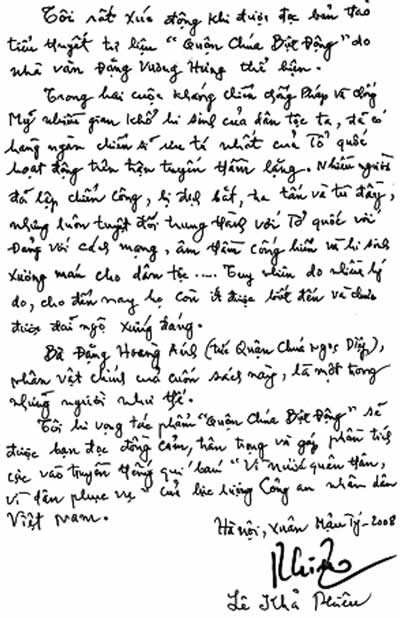 Tôi rất xúc động khi được đọc bản thảo
tiểu thuyết tư liệu "Quận Chúa Biệt Động" do
nhà văn Đặng Vương Hưng thể hiện.
Trong hai cuộc kháng chiến chống Pháp và chống
Mỹ nhiều gian khổ hi sinh của dân tộc ta, đã có
hàng ngàn chiến sĩ ưu tú nhất của Tổ quốc
hoạt động trên trận tuyến thầm lặng. Nhiều người
đã lập chiến công, bị địch bắt, tra tấn và tù đày,
nhưng luôn tuyệt đối trung thành với Tổ quốc với
Đảng với cách mạng, âm thầm cống hiến và hi sinh
xương máu cho dân tộc..... Tuy nhiên do nhiều lý
do, cho đến nay họ còn ít được biết đến và chưa
được đãi ngộ xứng đáng.
Bà Đặng Hoàng Ánh (tức Quận Chúa Ngọc Diệp),
nhân vật chính của cuốn sách này, là một trong
những người như thế.
Tôi hi vọng tác phẩm "Quận Chúa Biệt Động" sẽ
được bạn đọc đồng cảm, trân trọng và góp phần tích
cực vào truyền thống quí báu "Vì nước quên thân,
vì dân phục vụ" của lực lượng Công an nhân dân
Việt Nam.
Hà Nội, Xuân Mậu Tý - 2008
Lê Khả Phiêu